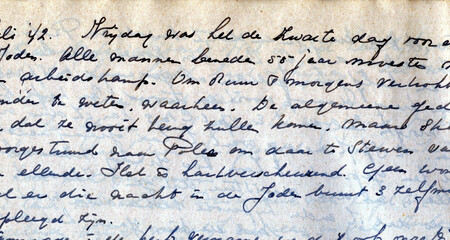 li '42. Vrijdag was het de zwarte dag voor d
Joden. Alle mannen beneden 55 jaar moesten n
arbeidskamp. Om 8 uur 's morgens vertrokk
onder te weten, waarheen. De algemeene ged
dat ze nooit terug zullen komen. maar
orgestuurd naar Polen om daar te sterven va
ellende. Het is hartverscheurend. Geen wo
d er die nacht in de Joden buurt 3 zelfmo
pleegd zijn.
in de kerk